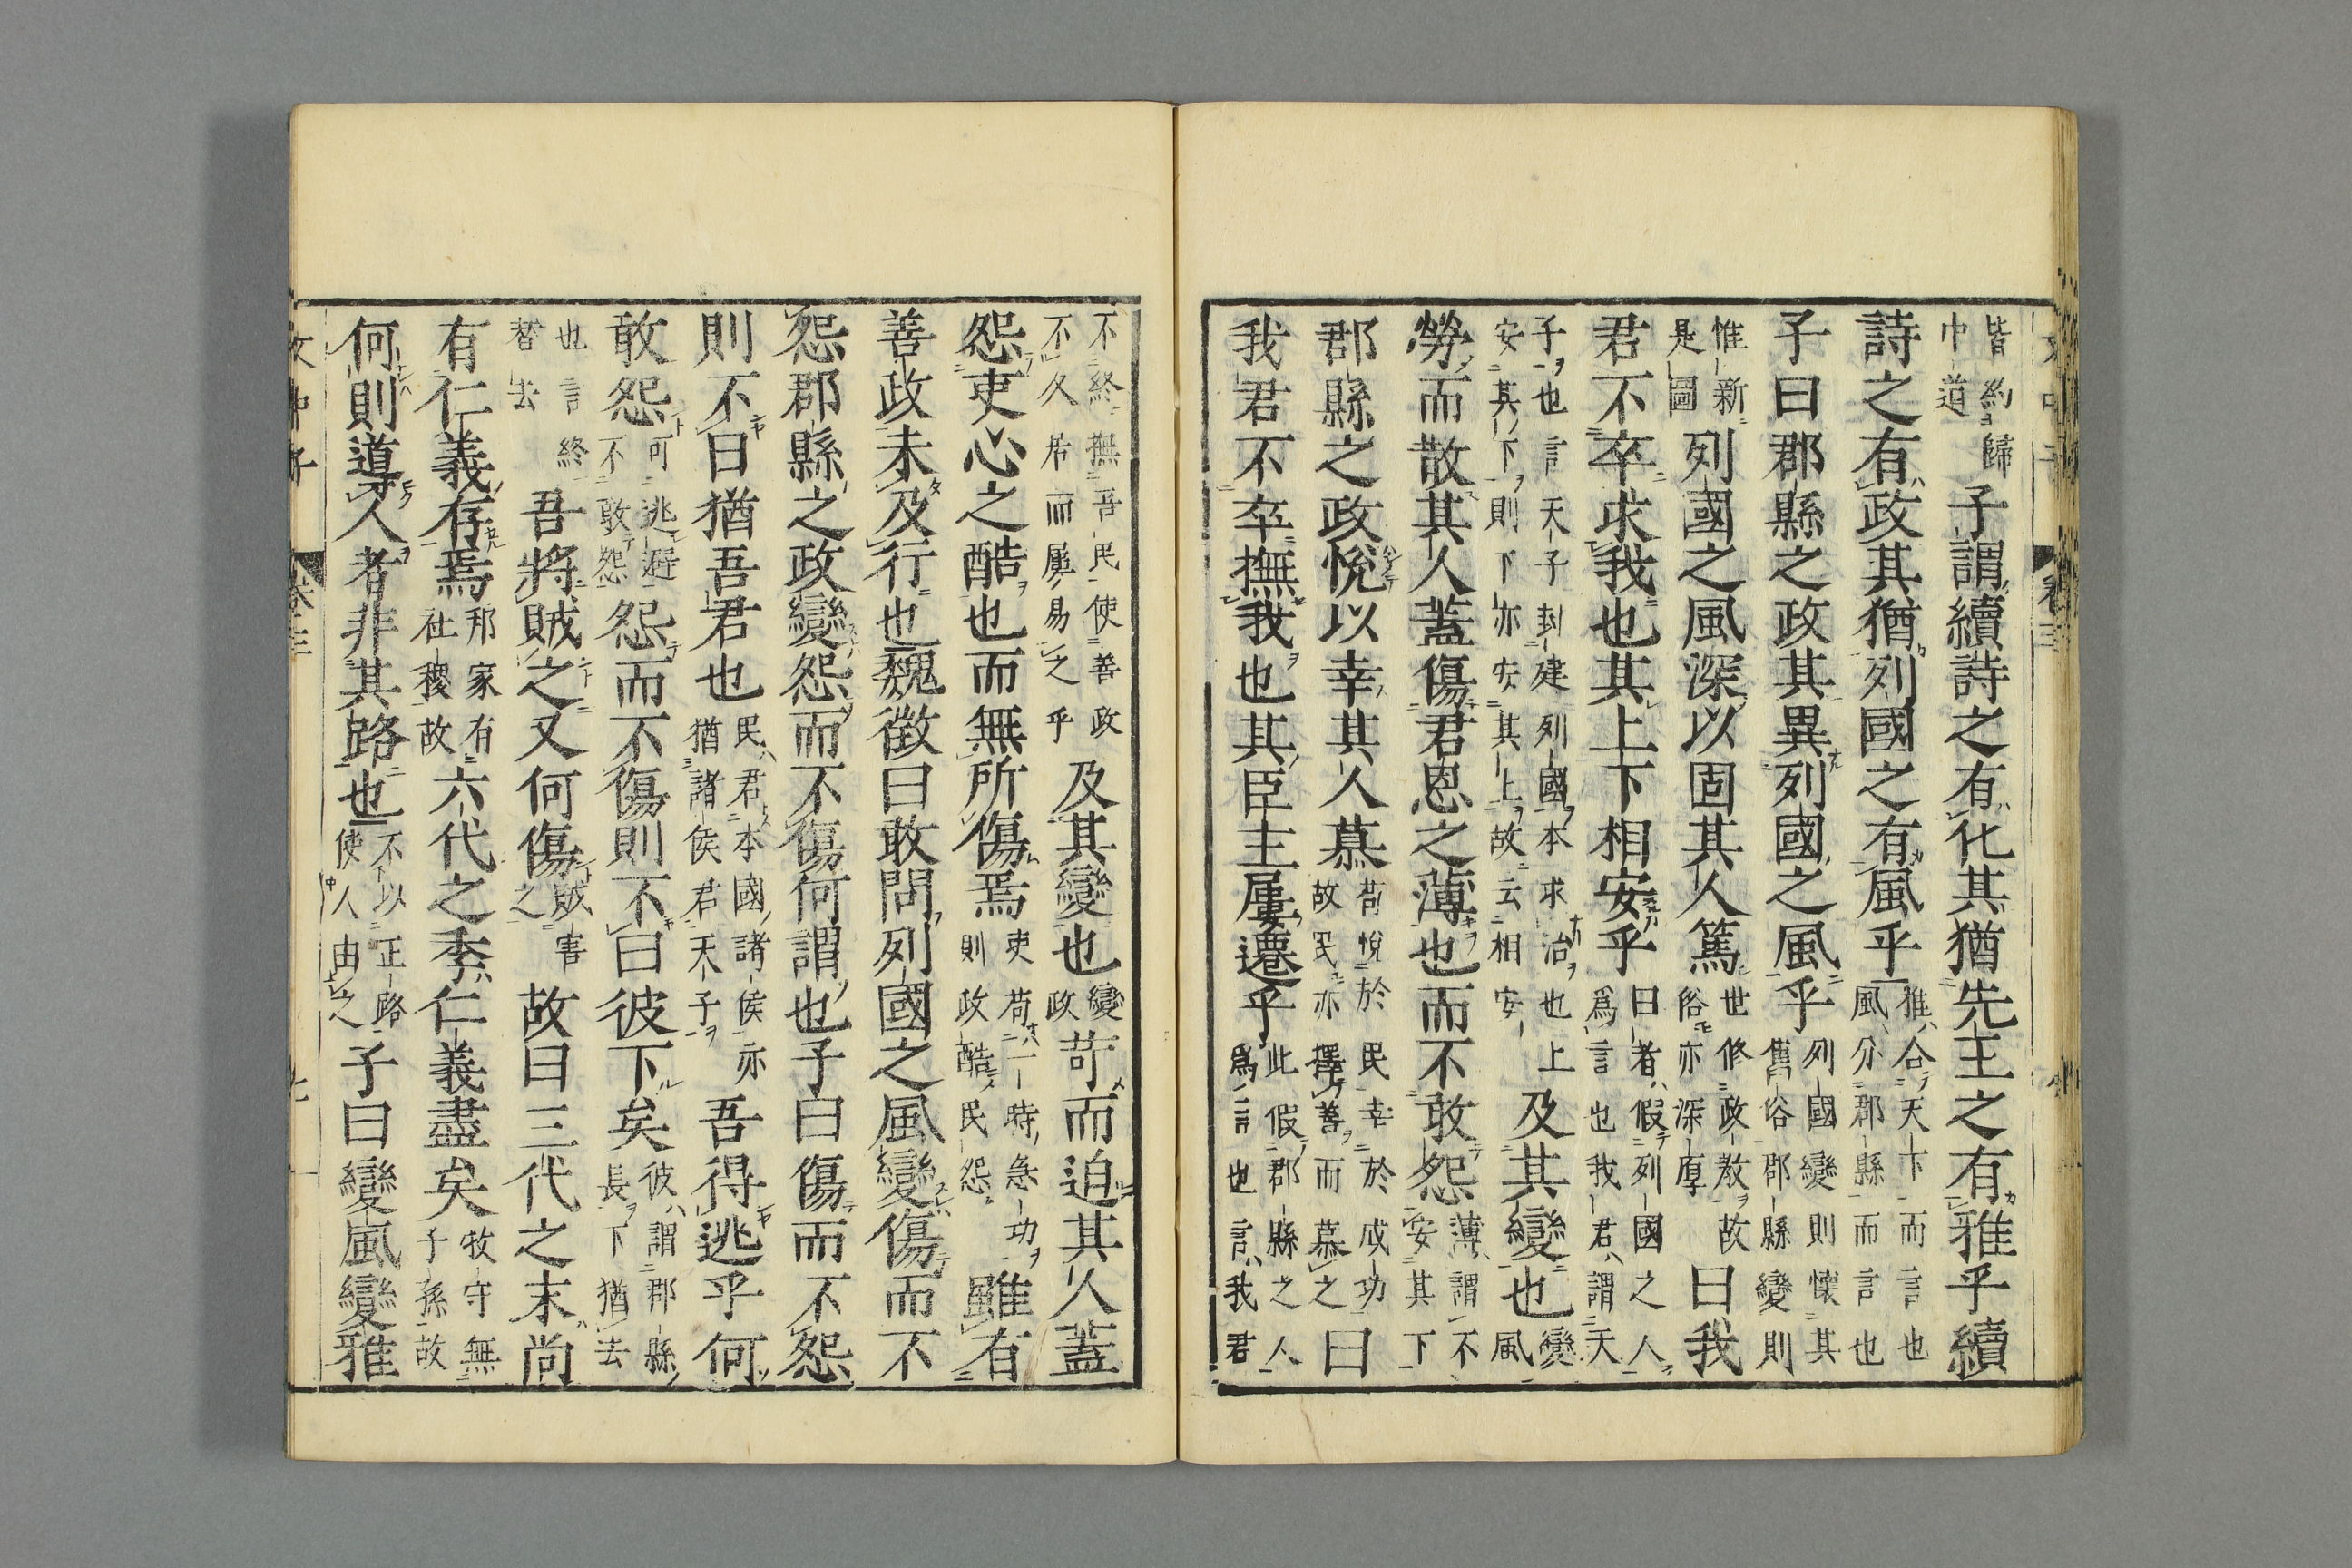 皆約歸中道子謂續詩之有化其猶先王之有雅乎續
詩之有政其猶列國之有風乎雅合天下而言也風分郡縣而言也
子曰郡縣之政其異列國之風乎列國變則懷其舊俗郡縣變則
惟新是圖列國之風深以固其人篤世修政教故俗亦深厚曰我
君不卒求我也其上下相安乎曰者假列國之人爲言也我君謂天
子也言天子封建列國本求治也上安其下則下亦安其上故云相安及其變也變風
勞而散其人蓋傷君恩之薄也而不敢怨薄謂不安其下
郡縣之政悅以幸其人慕苟悅於民幸於成功故民亦擇善而慕之曰
我君不卒撫我也其臣主屢遷乎此假郡縣之人爲言也言我君
不終撫吾民使善政不久居而屢易之乎及其變也變政苛而迫其人蓋
怨吏心之酷也而無所傷焉吏苟一時急功則政酷民怨雖有
善政未及行也魏徵曰敢問列國之風變傷而不
怨郡縣之政變怨而不傷何謂也子曰傷而不怨
則不曰猶吾君也民君本國諸侯亦猶諸侯君天子吾得逃乎何
敢怨可逃避不敢怨怨而不傷則不曰彼下矣彼謂郡縣長下猶去
也言終替去吾將賊之又何傷賊害之故曰三代之末尚
有仁義存焉邦家有社稷故六代之季仁義盡矣牧守無子孫故
何則導人者非其路也不以正路使人由之子曰變風變雅